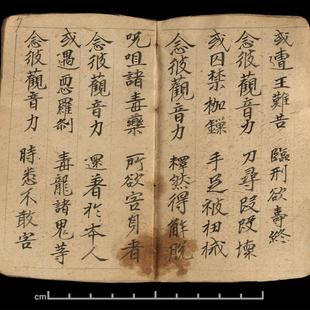 或遭王難苦 臨刑欲壽終
念彼觀音力 刀尋段段壞
或囚禁枷鏁 手足被杻械
念彼觀音力 釋然得解脫
呪咀諸毒藥 所欲害身者
念彼觀音力 還着於本人
或遇惡羅剎 毒龍諸鬼等
念彼觀音力 時悉不敢害
cm